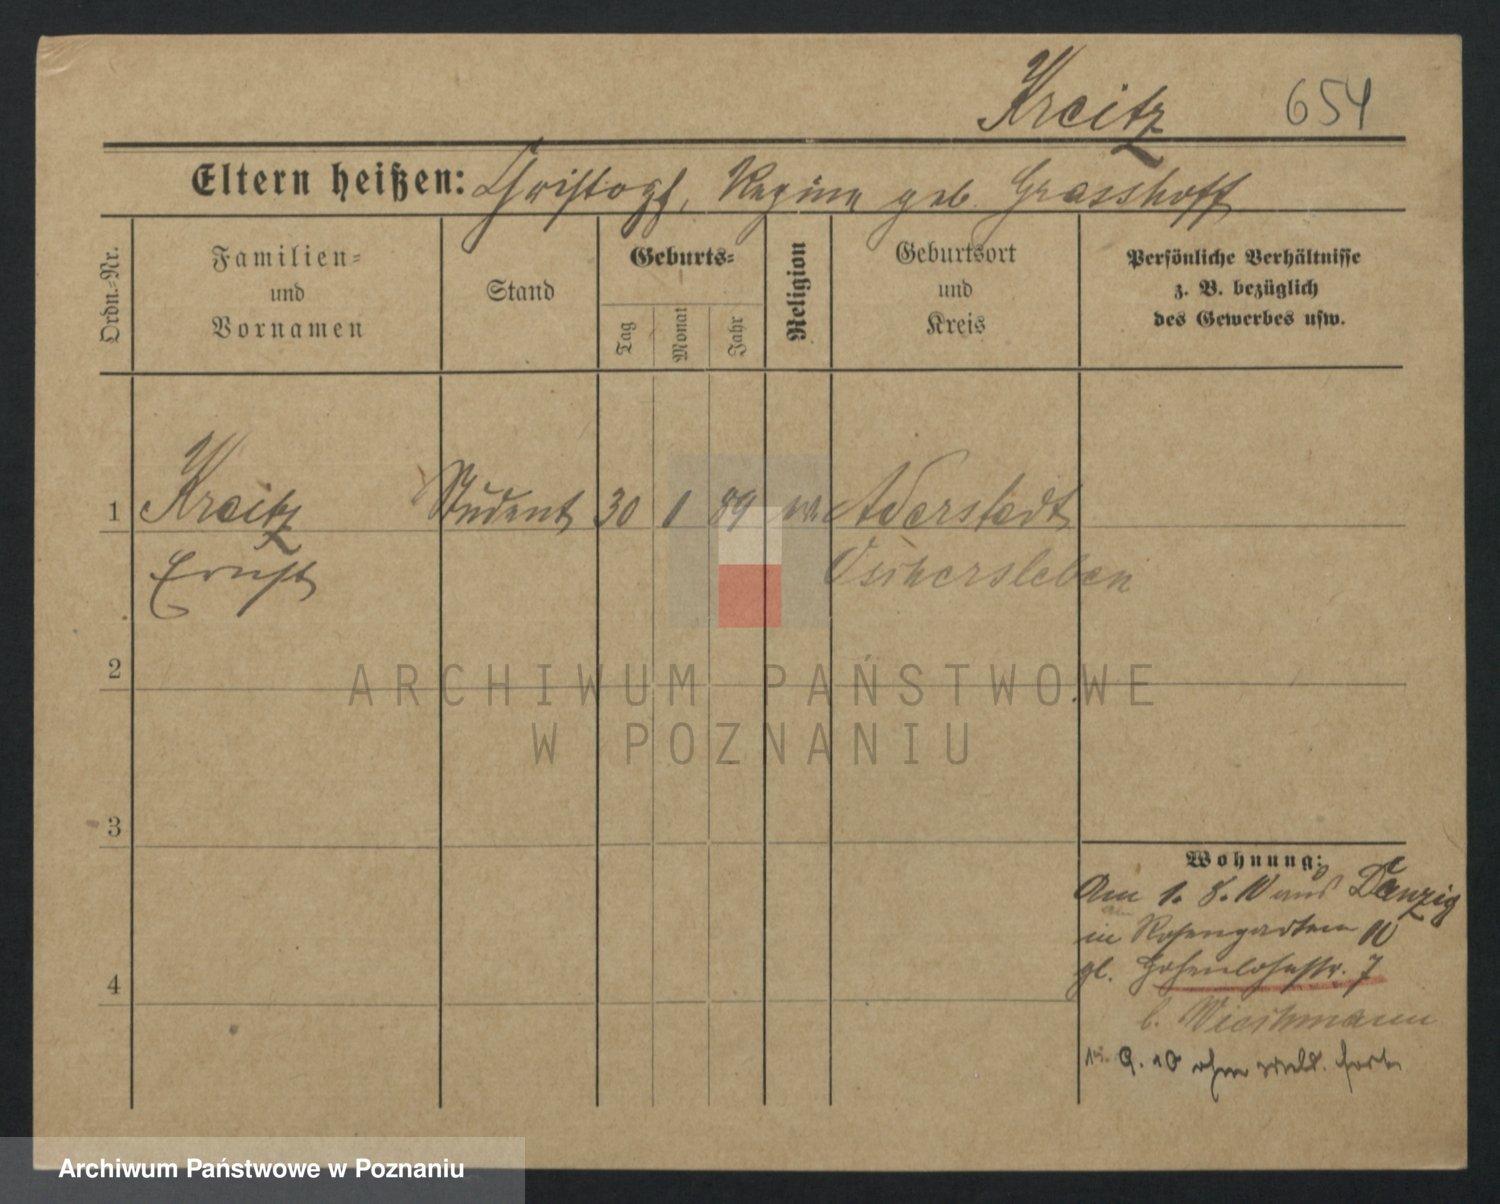 Kreitz 654
Eltern heißen: Christoph, Regine geb. Grasshoff
Ordn.=Nr.
Familien=
und
Vornamen
Stand
Geburts=
Tag
Monat
Jahr
Religion
Geburtsort
und
Kreis
Persönliche Verhältnisse
z. B. bezüglich
des Gewerbes usw.
1 Kreitz Student 30 1 89 Aderstedt
Ernst Oschersleben
2
ARCHIWUM PAŃSTWOWE
W POZNANIU
3
Wohnung:
Am 1. 8. 10 aus Danzig
in Rosengarten 10
gl. Hohenlohestr. 7
4
b. Wiechmann
9. 10 ohne Meld. fort
Archiwum Państwowe w Poznaniu